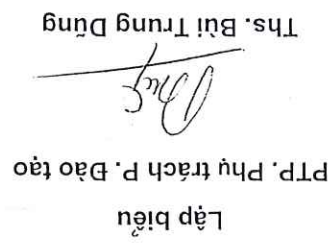 Lập biểu
PTP. Phụ trách P. Đào tạo
Ths. Bùi Trung Dũng